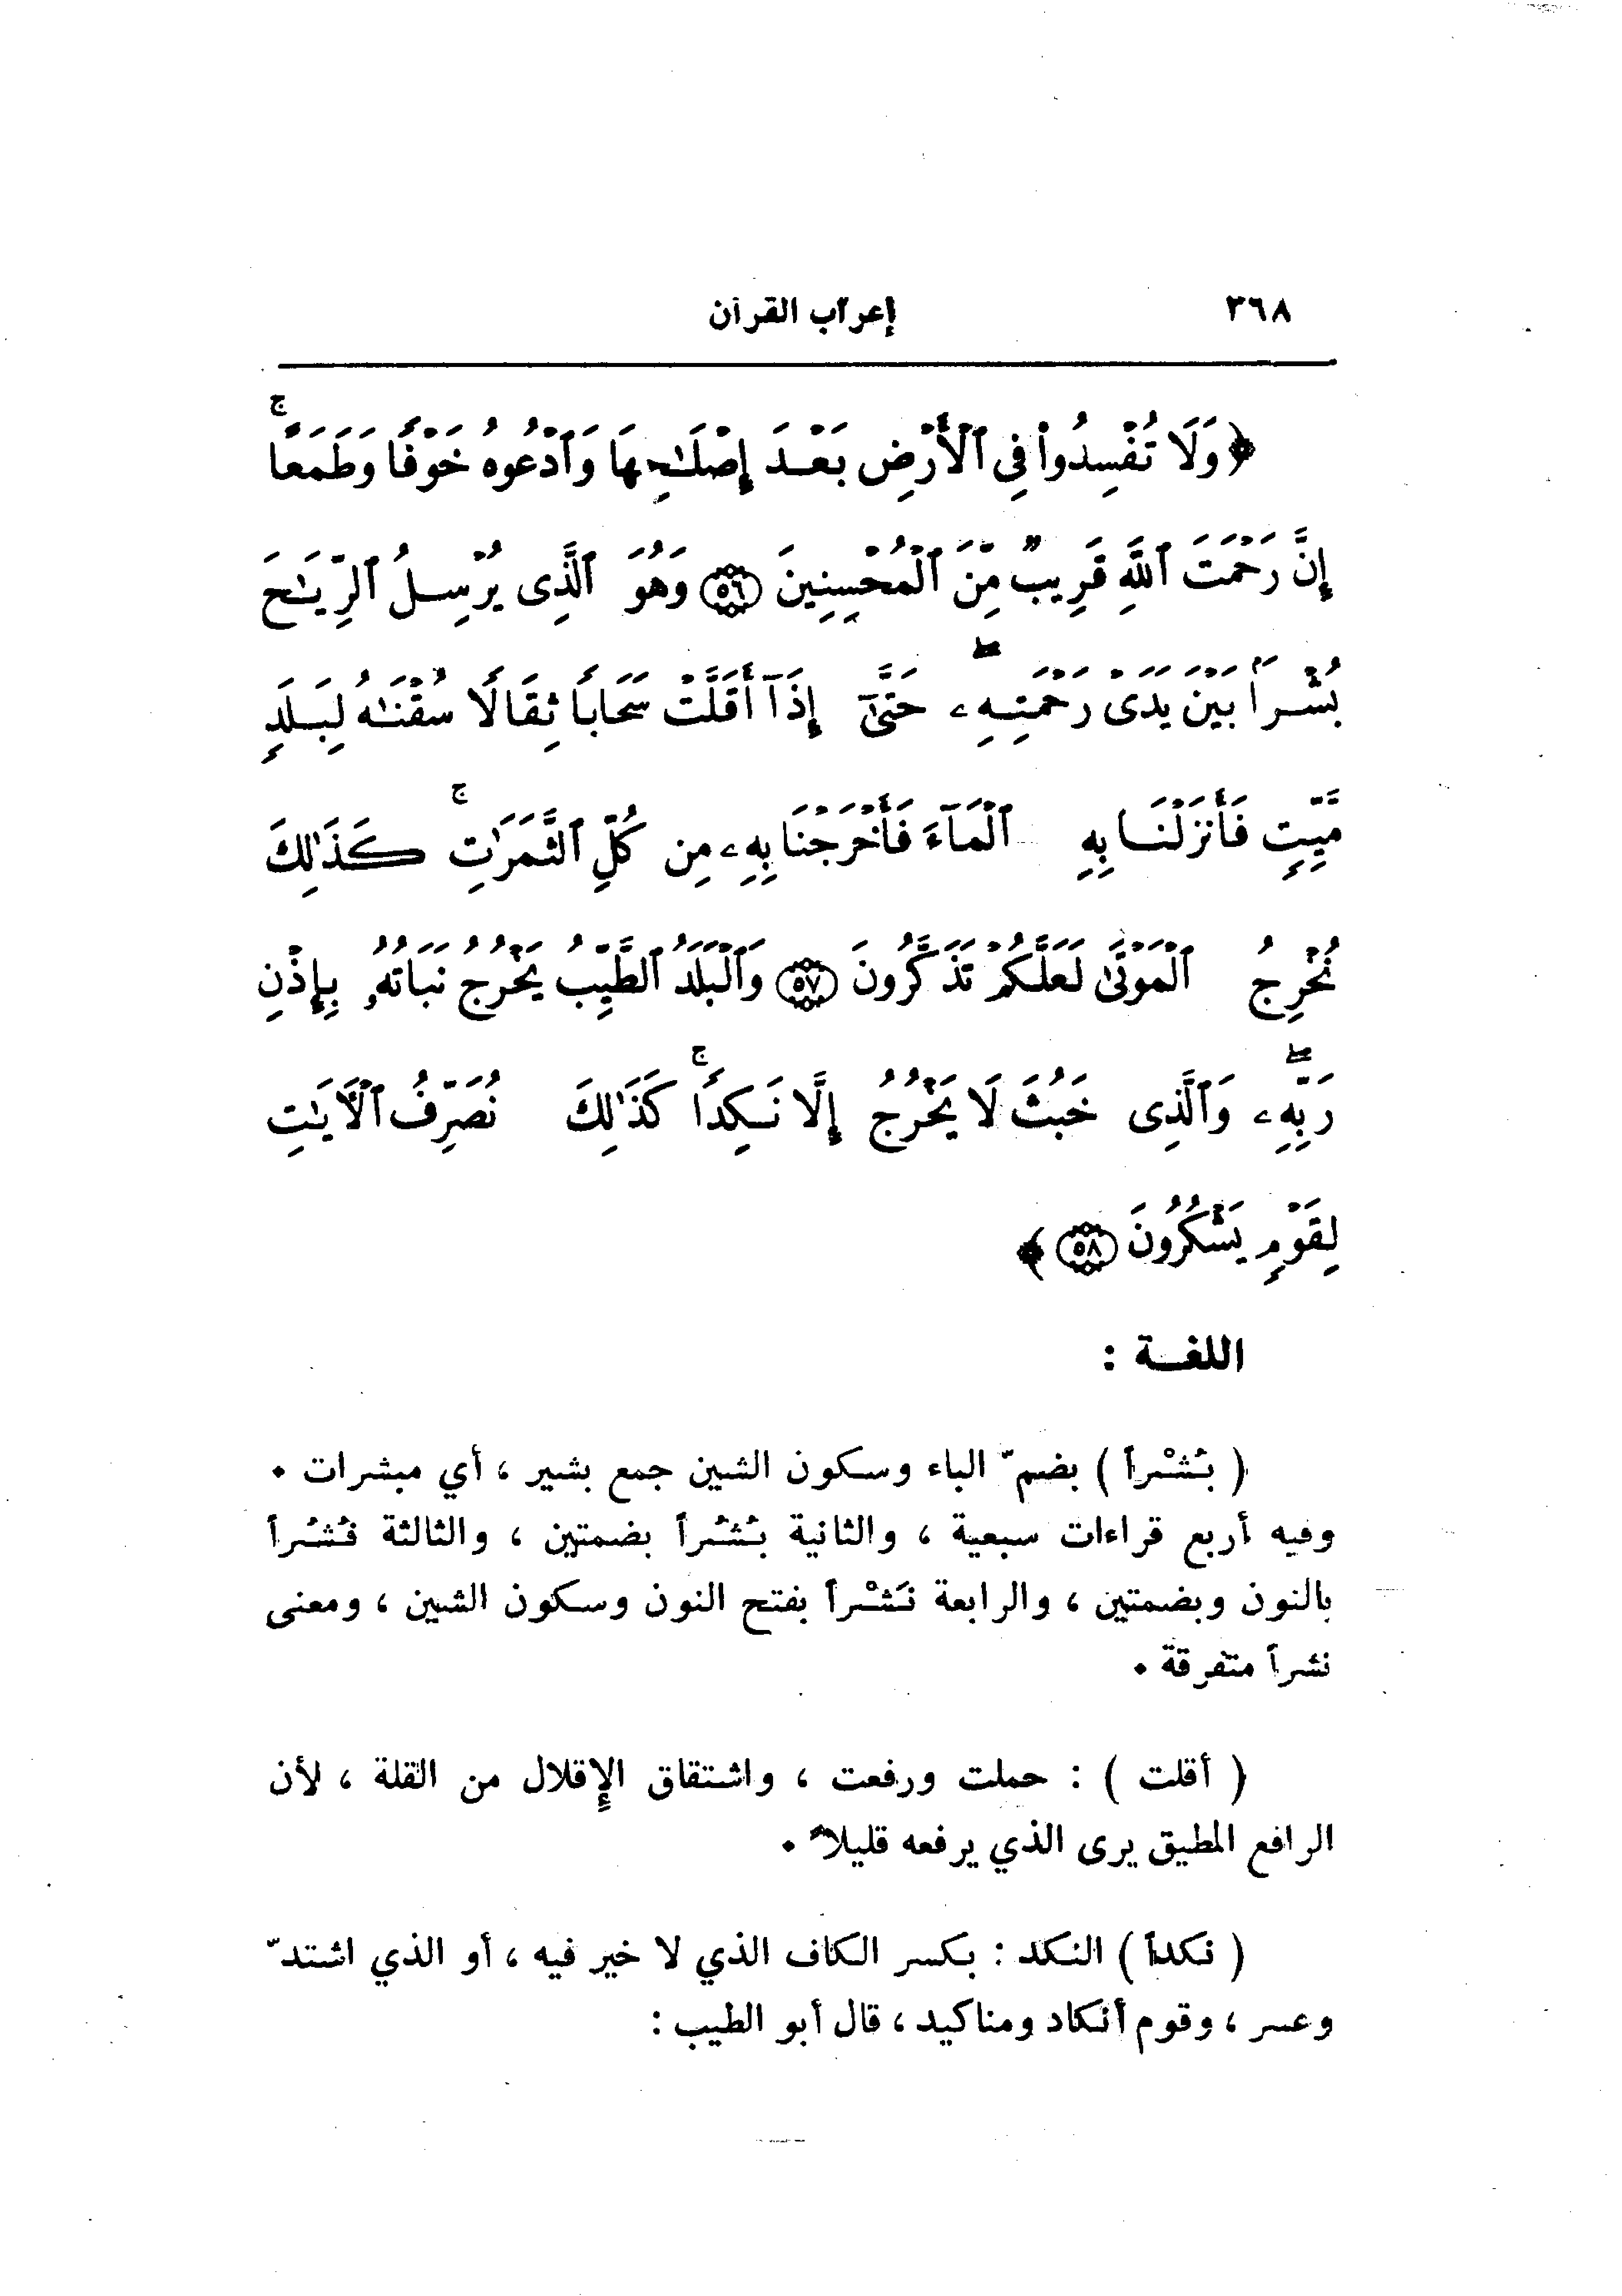 ٣٦٨
إعراب القرآن
﴿ وَلَا تُفْسِدُوا۟ فِى ٱلْأَرْضِ بَعْدَ إِصْلَـٰحِهَا وَٱدْعُوهُ خَوْفًا وَطَمَعًا ۚ
إِنَّ رَحْمَتَ ٱللَّهِ قَرِيبٌ مِّنَ ٱلْمُحْسِنِينَ ٥٦ وَهُوَ ٱلَّذِى يُرْسِلُ ٱلرِّيَـٰحَ
بُشْرًا بَيْنَ يَدَىْ رَحْمَتِهِۦ ۖ حَتَّىٰٓ إِذَآ أَقَلَّتْ سَحَابًا ثِقَالًا سُقْنَـٰهُ لِبَلَدٍ
مَّيِّتٍ فَأَنزَلْنَا بِهِ ٱلْمَآءَ فَأَخْرَجْنَا بِهِۦ مِن كُلِّ ٱلثَّمَرَٰتِ ۚ كَذَٰلِكَ
نُخْرِجُ ٱلْمَوْتَىٰ لَعَلَّكُمْ تَذَكَّرُونَ ٥٧ وَٱلْبَلَدُ ٱلطَّيِّبُ يَخْرُجُ نَبَاتُهُۥ بِإِذْنِ
رَبِّهِۦ ۖ وَٱلَّذِى خَبُثَ لَا يَخْرُجُ إِلَّا نَكِدًا ۚ كَذَٰلِكَ نُصَرِّفُ ٱلْأَيَـٰتِ
لِقَوْمٍ يَشْكُرُونَ ٥٨ ﴾
اللغة :
( بُشْراً ) بضم ّ الباء وسكون الشين جمع بشير ، أي مبشرات .
وفيه أربع قراءات سبعية ، والثانية بُشُراً بضمتين ، والثالثة نُشُراً
بالنون وبضمتين ، والرابعة نَشْراً بفتح النون وسكون الشين ، ومعنى
نشراً متفرقة .
( أقلت ) : حملت ورفعت ، واشتقاق الإِقلال من القلة ، لأن
الرافع المطيق يرى الذي يرفعه قليلاً .
( نكداً ) النكد : بكسر الكاف الذي لا خير فيه ، أو الذي اشتد ّ
وعسر ، وقوم أنكاد ومناكيد ، قال أبو الطيب :